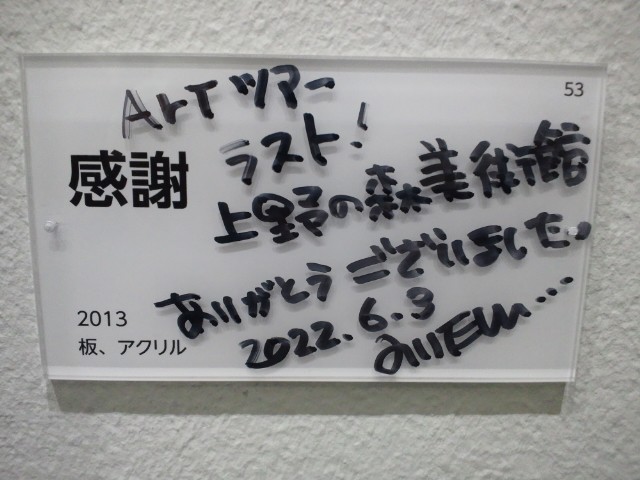 53
Artツアー
ラスト!
感謝
上野の森美術館
ありがとうございました。
2013
2022.6.3
板、アクリル